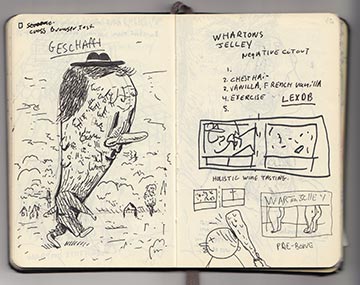 CROSS BROWSER TASK
GESCHAFFT
WHARTONS
JELLEY
NEGATIVE CUTOUT
1.
2. CHEST HAIR
2. VANILLA, FRENCH VANILLA
4. EXERCISE LEXDB
5.
HOLISTIC WINE TASTING.
WARTON JELLEY
PRE-BONE